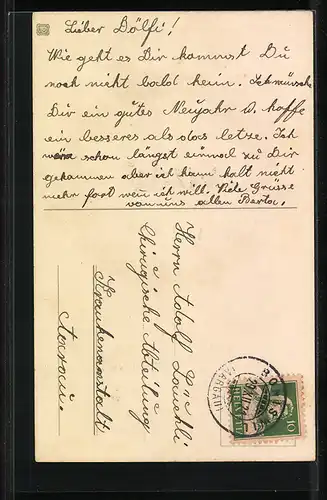 Lieber Dölfi!
Wie geht es Dir kommst Du
noch nicht bald heim. Ich wünsche
Dir ein gutes Neujahr u. hoffe
ein besseres als das letze. Ich
wäre schon längst einmal zu Dir
gekommen aber ich kann halt nicht
mehr fort wen ich will. Viele Grüsse
von uns allen Berta.
Herrn Adolf Läuchli
Chirugische Abteilung
Krankenanstalt
Aarau.
(AARGAU)
HELVETIA
10